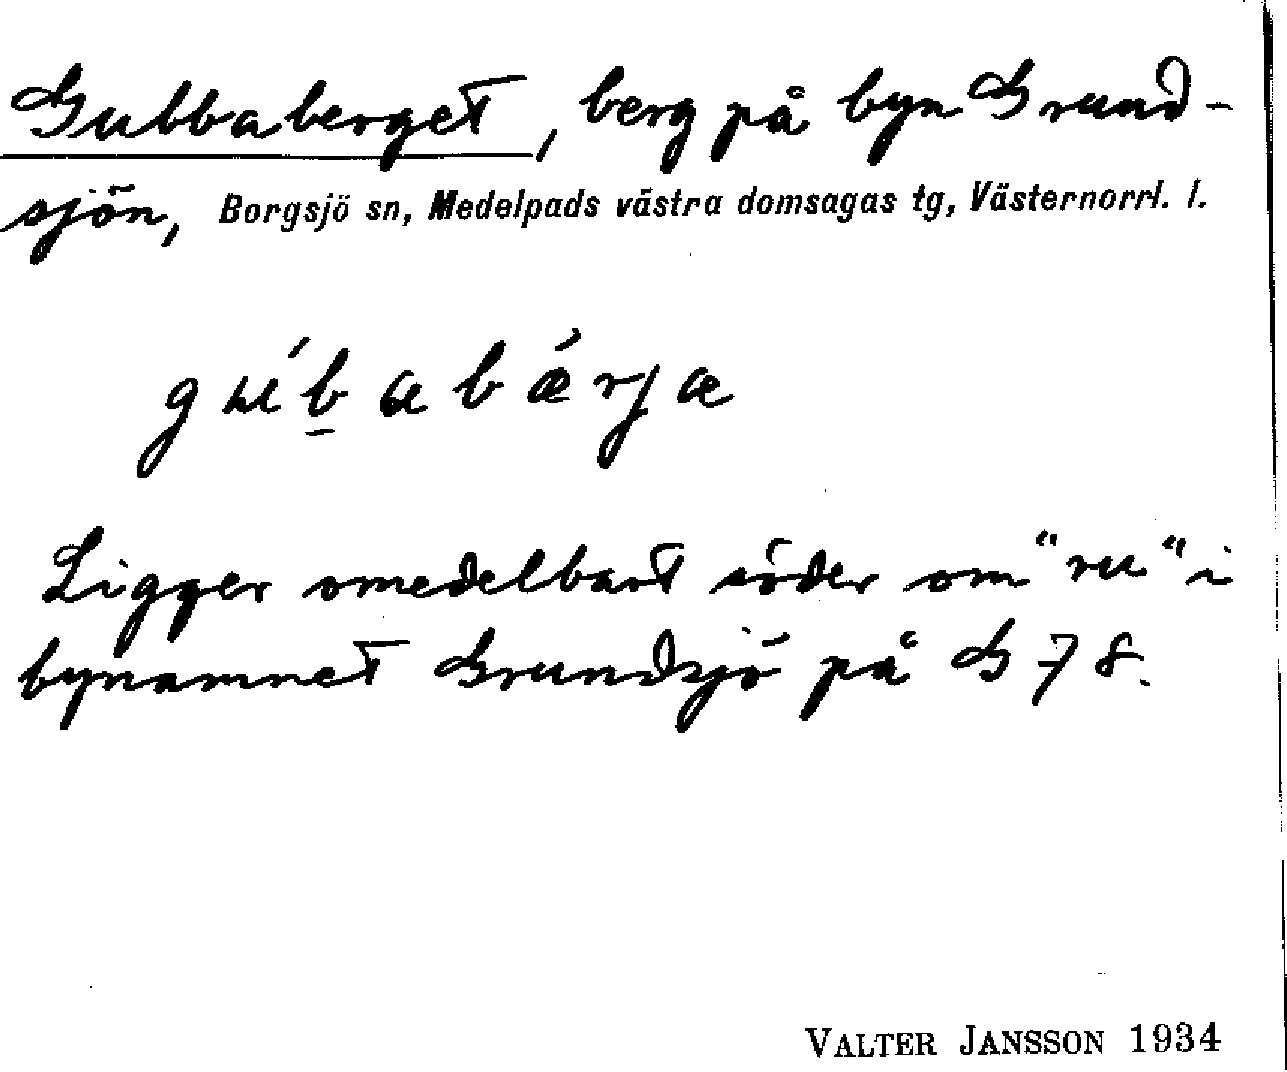 Gubbaberget, berg på byn Grund-
sjön, Borgsjö sn, Medelpads västra domsagas tg, Västernorrl. l.
gúb̲abǽrjæ
Ligger omedelbart söder om "ru" i
bynamnet Grundsjö på G 78.
VALTER JANSSON 1934